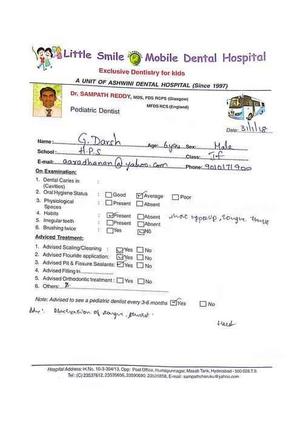 Little Smile Mobile Dental Hospital
Exclusive Dentistry for kids
A UNIT OF ASHWINI DENTAL HOSPITAL (Since 1997)
Dr. SAMPATH REDDY, MDS, FDS RCPS (Glasgow)
MFDS RCS (England)
Pediatric Dentist
Date: 3/1/18
Name: G. Darsh Age: 6yrs Sex: Male
School: H.P.S Class: If
E-mail: aaradhanan@yahoo.com Phone: 9010171900
On Examination:
1. Dental Caries in (Cavities)
2. Oral Hygiene Status : Good Average Poor
3. Physiological Spaces : Present Absent
4. Habits : Present Absent
5. Irregular teeth : Present Absent
6. Brushing twice : Yes No
Adviced Treatment:
1. Advised Scaling/Cleaning : Yes No
2. Advised Flouride application : Yes No
3. Advised Pit & Fissure Sealants : Yes No
4. Advised Filling In
5. Advised Orthodontic treatment : Yes No
6. Others:
Note: Advised to see a pediatric dentist every 3-6 months Yes No
Adv:
Hospital Address: H.No. 10-3-304/13, Opp: Post Office, Humayunnagar, Masab Tank, Hyderabad - 500 028.T.S